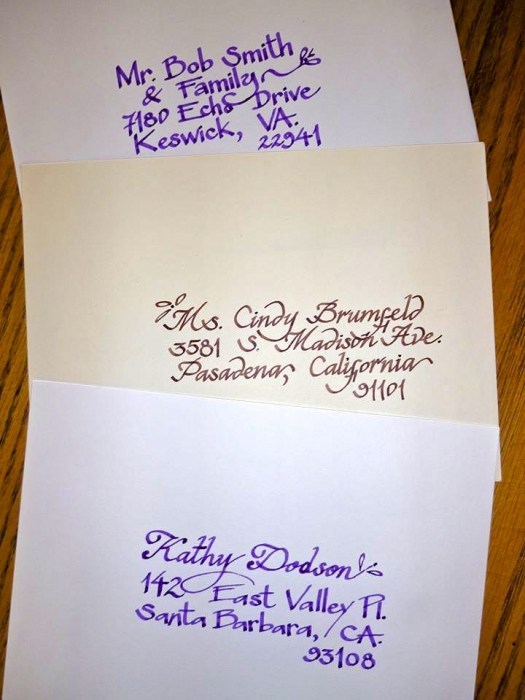 Mr. Bob Smith
& Family
7180 Echo Drive
Keswick, VA.
22941
Ms. Cindy Brumfeld
3581 S. Madison Ave.
Pasadena, California
91101
Kathy Dodson
142 East Valley Pl.
Santa Barbara, CA.
93108